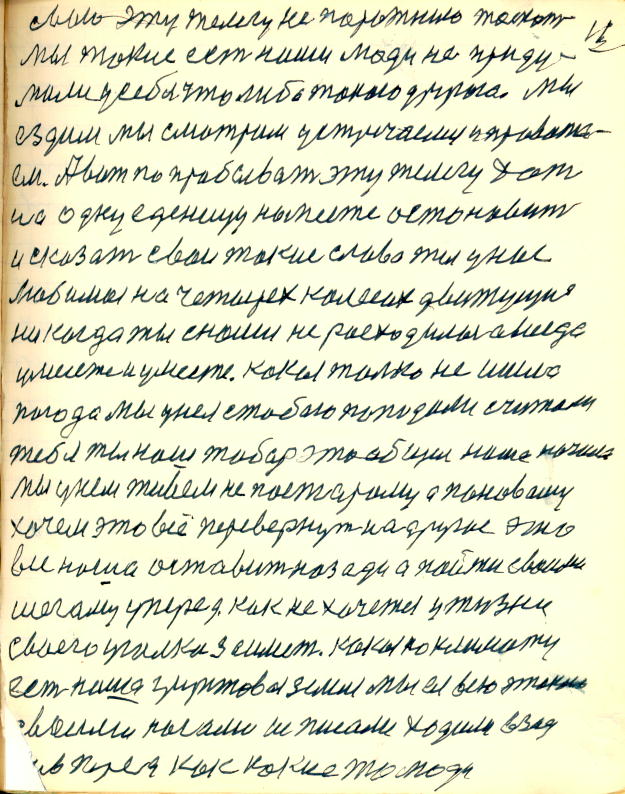 свою эту телегу не порожнию таскат 13
мы такие ест наши люди не приду-
мали у себя что либо такого другога. мы
ездим мы смотрим устричаем и провожа-
ем. А вот попробыват эту телегу хот
на одну еденицу на месте остановит
и сказат свои такие слова ты у нас
любимая на четырех колесах движущия
никогда ты с нами не расходилас а всегда
уместе и уместе. какая толко не шила
погода мы у нея с тобою попадали считали
тебя ты наш тавар это общия наше начила
мы у нем живем не по старому а по новаму
хочем это всё перевернут на другое это
все наша оставит позади а пойти своими
шогами уперед. как не хочется у жизни
своего уголка занимат. какая по климату
ест наша грунтовая земля мы ея всю
своими ногами исписали ходили взад
и в перед как какие то люди